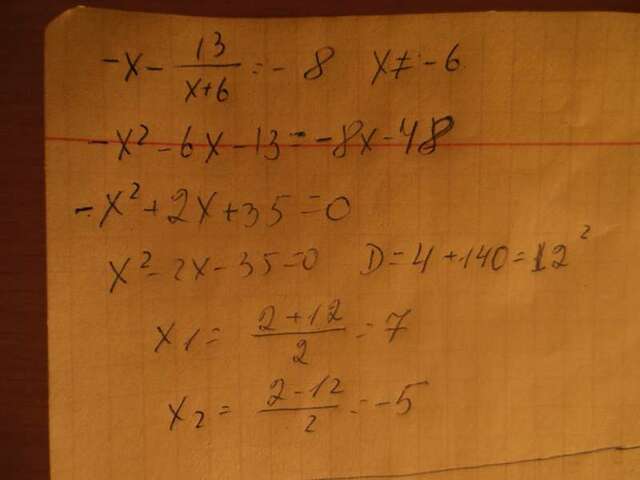 -x - 13/(x+6) = -8 x ≠ -6
-x² - 6x - 13 = -8x - 48
-x² + 2x + 35 = 0
x² - 2x - 35 = 0 D = 4 + 140 = 12²
x₁ = (2 + 12)/2 = 7
x₂ = (2 - 12)/2 = -5